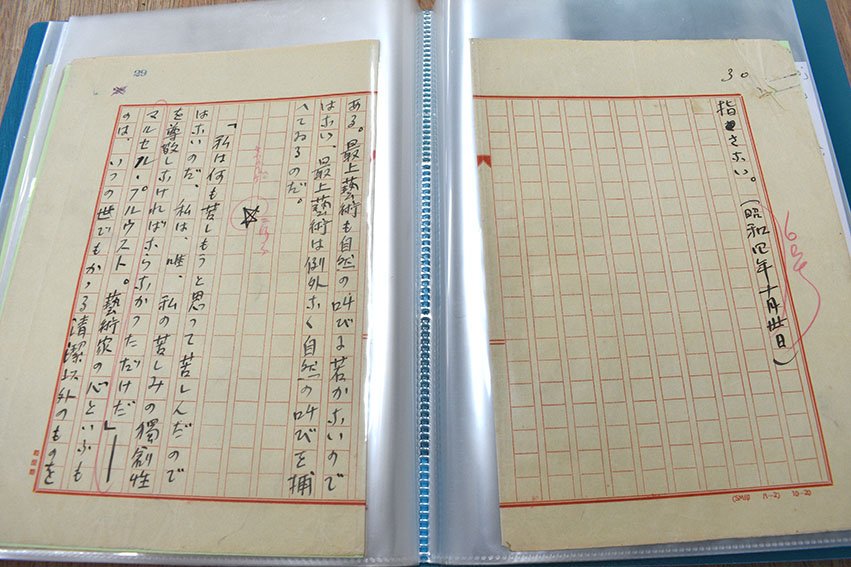 29
ある。最上藝術も自然の叫びに若かないので
はない、最上藝術は例外なく自然の叫びを捕
へてゐるのだ。
☆
「私は何も苦しもうと思って苦しんだので
はないのだ、私は、唯、私の苦しみの獨創性
を尊敬しなければならなかっただけだ」―
マルセル・プルウスト。藝術家の心といふも
のは、いつの世でもかゝる清潔以外のものを
30
指さない。(昭和四年十月丗日)
6号
10-20